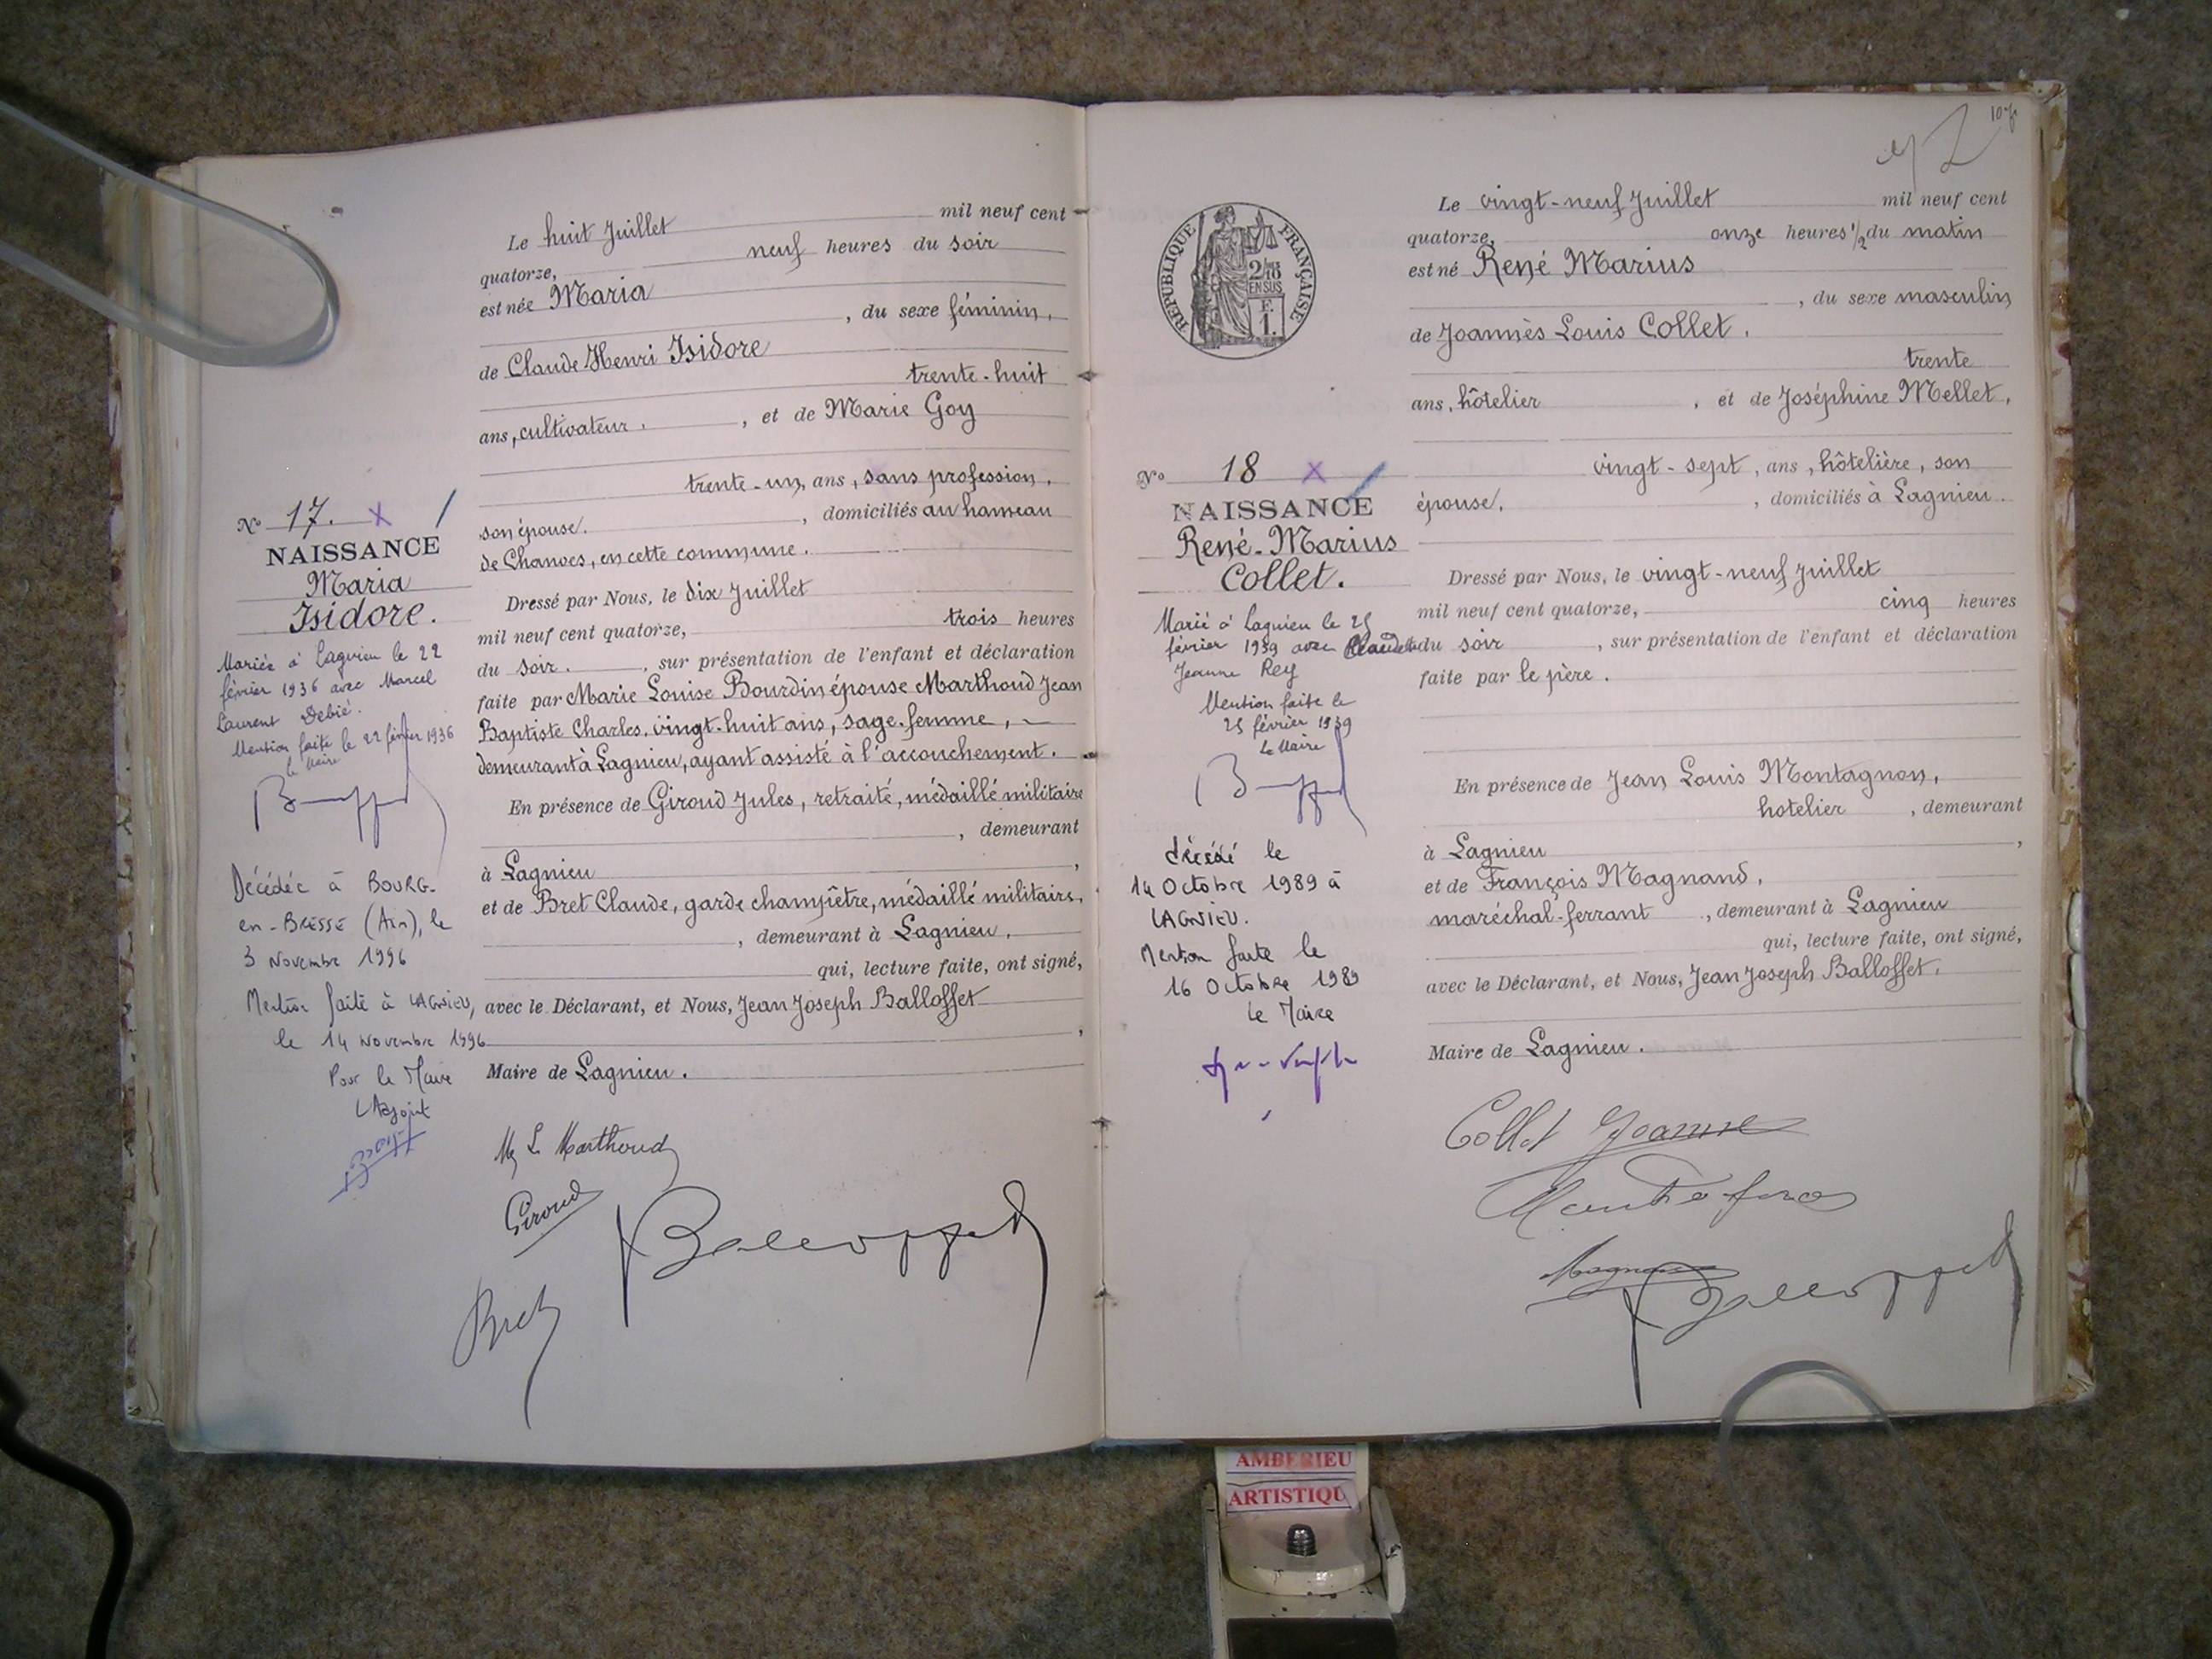 Le huit Juillet mil neuf cent
quatorze, neuf heures du soir
est née Maria
, du sexe féminin,
de Claude Henri Isidore
trente-huit
ans, cultivateur, et de Marie Goy
trente-un, ans, sans profession,
son épouse, domiciliés au hameau
de Chanves, en cette commune.
Dressé par Nous, le dix Juillet
mil neuf cent quatorze, trois heures
du soir, sur présentation de l'enfant et déclaration
faite par Marie Louise Bourdin épouse Marthoud Jean
Baptiste Charles, vingt-huit ans, sage-femme,
demeurant à Lagnieu, ayant assisté à l'accouchement.
En présence de Giroud Jules, retraité, médaillé militaire
, demeurant
à Lagnieu,
et de Bret Claude, garde champêtre, médaillé militaire,
, demeurant à Lagnieu,
qui, lecture faite, ont signé,
avec le Déclarant, et Nous, Jean Joseph Balloffet
,
Maire de Lagnieu.
M L Marthoud
Giroud
Balloffet
Bret
No 17.
NAISSANCE
Maria
Isidore.
Mariée à Lagnieu le 22
février 1936 avec Marcel
Laurent Debié.
Mention faite le 22 février 1936
le Maire
Décédée à BOURG-
en-BRESSE (Ain), le
3 Novembre 1996
Mention faite à LAGNIEU,
le 14 Novembre 1996
Pour le Maire
L'Adjoint
107
Le vingt-neuf Juillet mil neuf cent
quatorze, onze heures 1/2 du matin
est né René Marius
, du sexe masculin
de Joannès Louis Collet,
trente
ans, hôtelier, et de Joséphine Mellet,
vingt-sept, ans, hôtelière, son
épouse, domiciliés à Lagnieu.
Dressé par Nous, le vingt-neuf Juillet
mil neuf cent quatorze, cinq heures
du soir, sur présentation de l'enfant et déclaration
faite par le père.
En présence de Jean Louis Montagnon,
hotelier, demeurant
à Lagnieu,
et de François Magnand,
maréchal-ferrant, demeurant à Lagnieu
qui, lecture faite, ont signé,
avec le Déclarant, et Nous, Jean Joseph Balloffet,
Maire de Lagnieu.
Collet Joanne
Balloffet
RÉPUBLIQUE FRANÇAISE
2/10
EN SUS
F.
1.
No 18
NAISSANCE
René-Marius
Collet.
Marié à Lagnieu le 25
février 1939 avec
Jeanne Rey
Mention faite le
25 février 1939
Le Maire
décédé le
14 Octobre 1989 à
LAGNIEU.
Mention faite le
16 Octobre 1989
Le Maire
AMBERIEU
ARTISTIQU